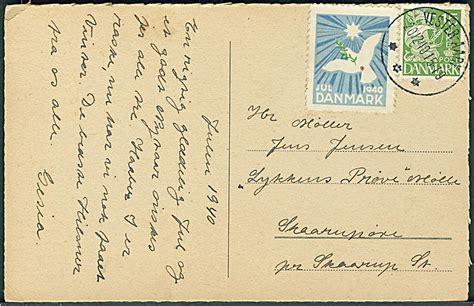 Julen 1940
En rigtig glædelig Jul og
et godt Nytaar ønskes
for alle. Haaber I er
raske, nu har vi nok faaet
Vinter. De bedste Hilsner
fra os alle.
JUL 1940
DANMARK
Hr Møller
Jens Jensen
"Lykkens Prøve" Mølle
Skaarupøre
pr Skaarup St.